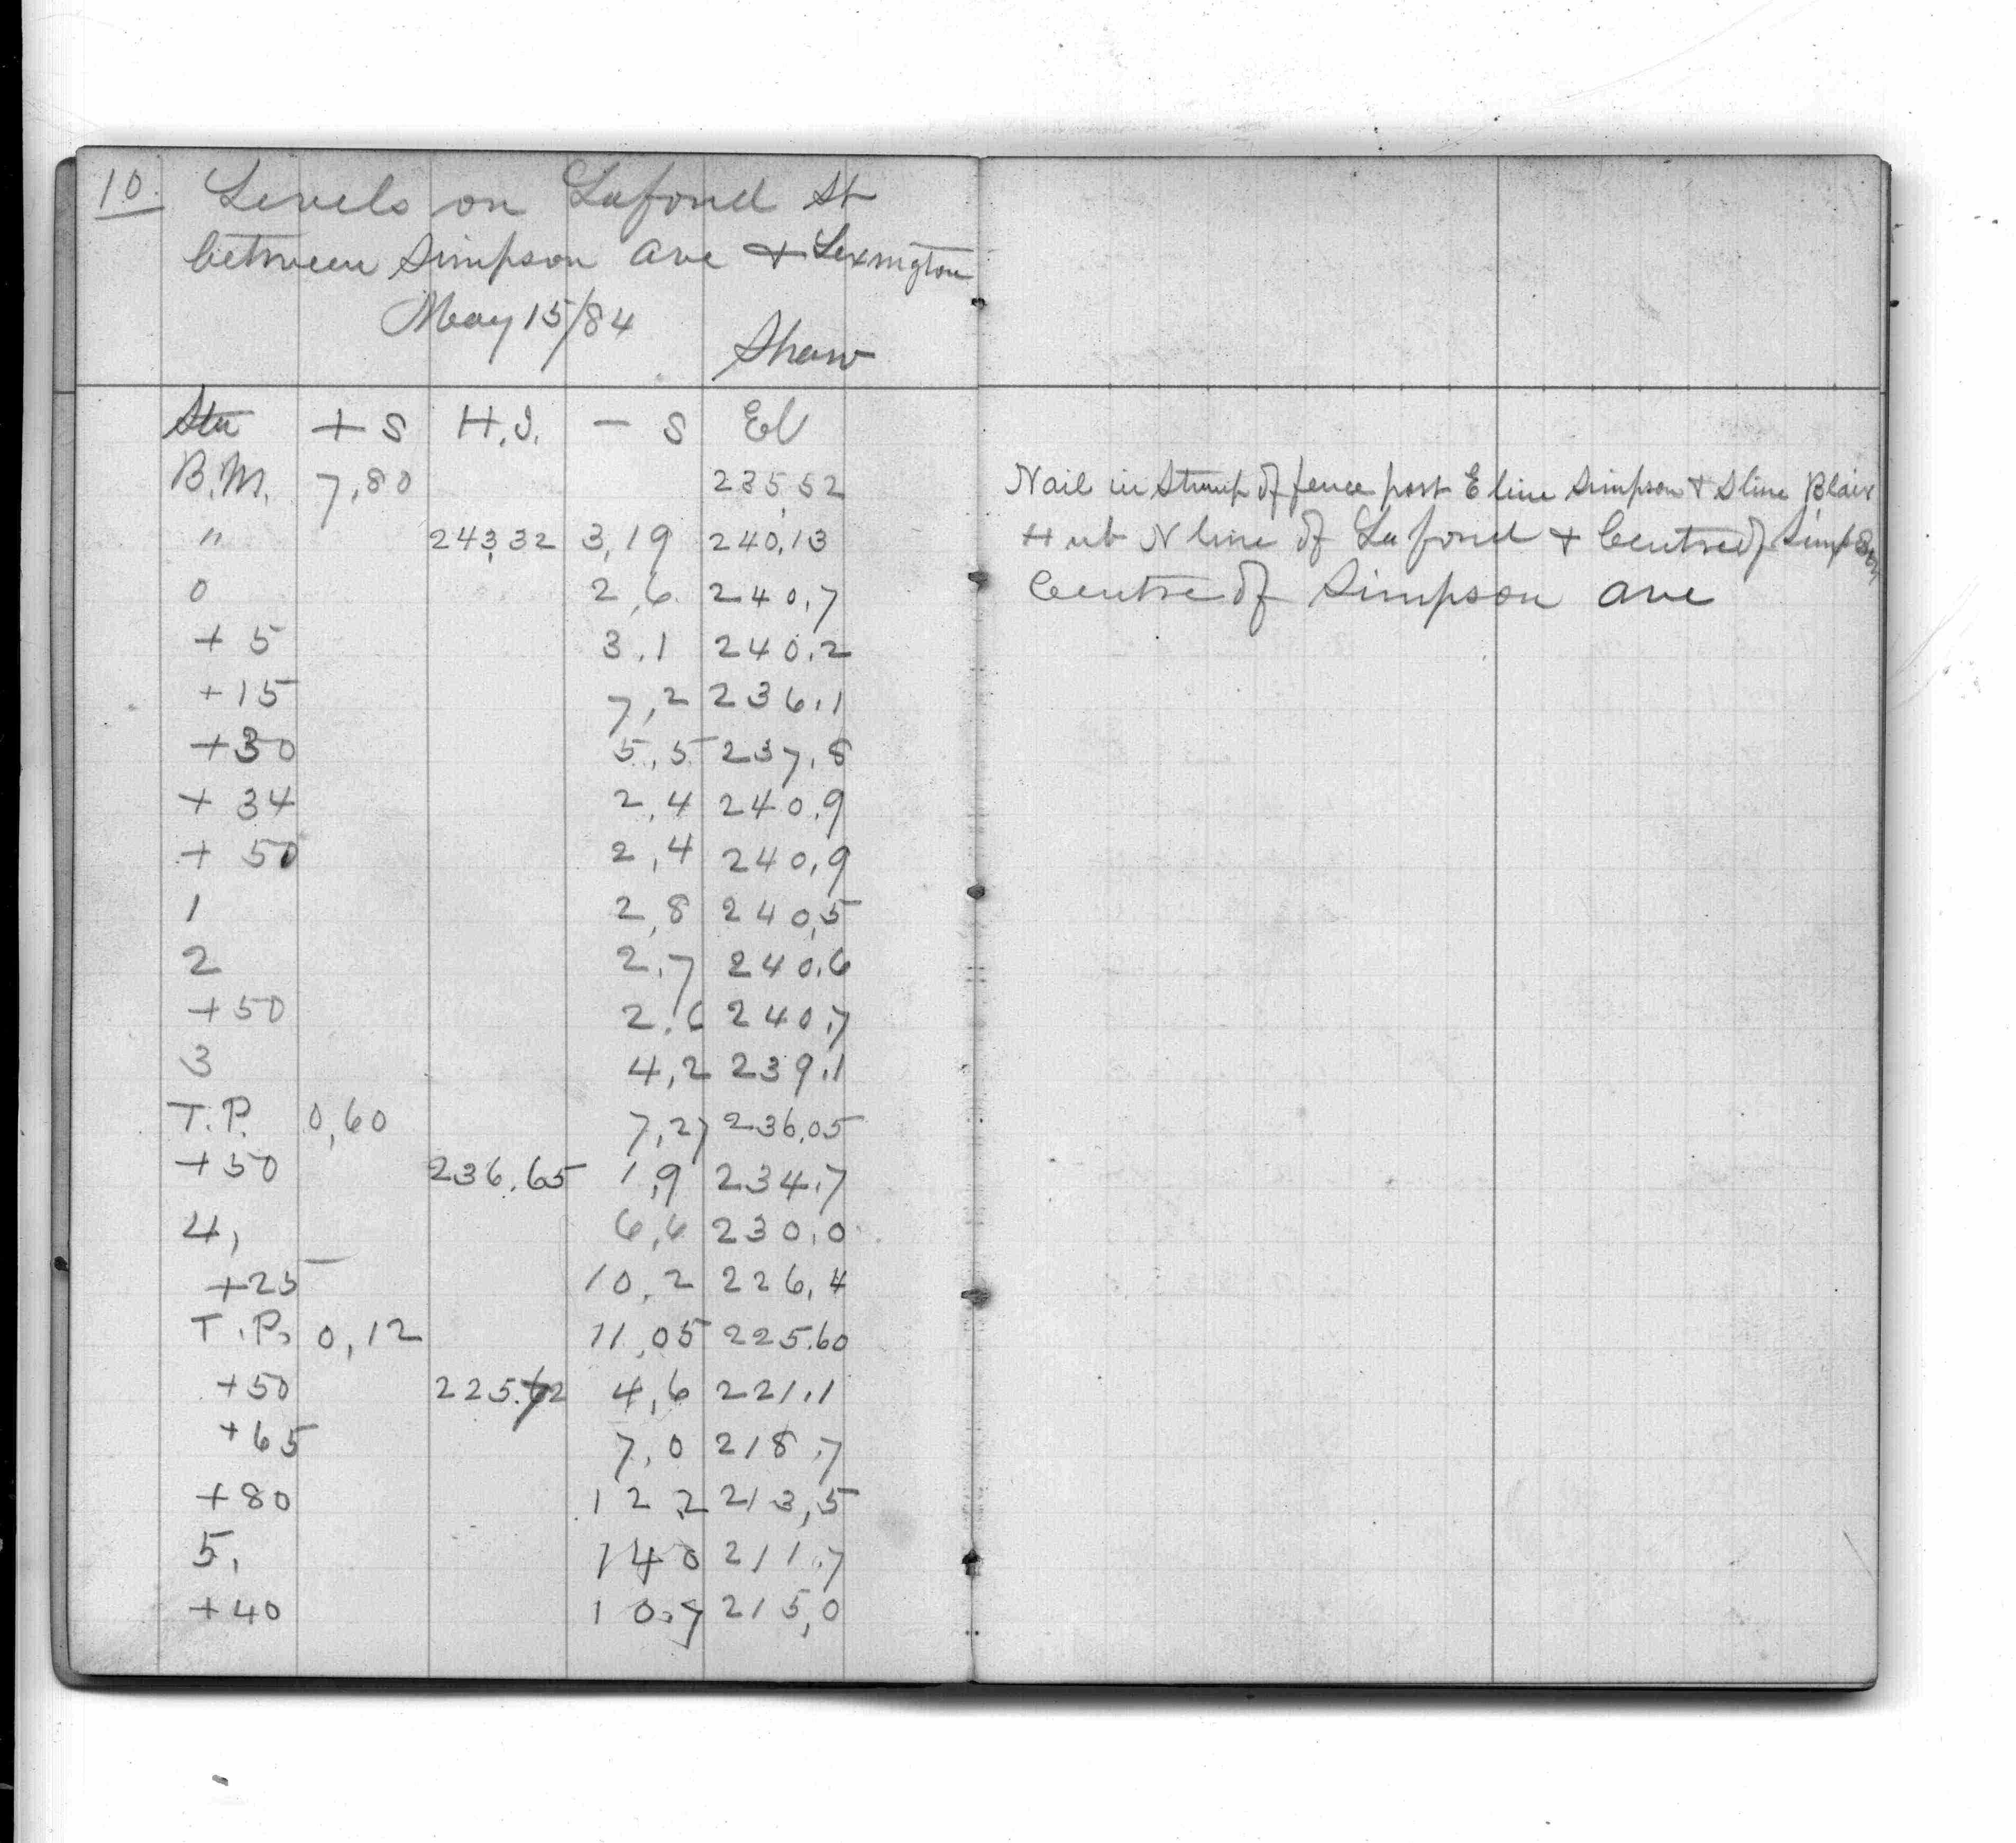 10.
Levels on Lafond St
between Simpson Ave + Lexington
May 15/84
Shaw
Sta + S H.I. - S El
B.M. 7,80 235,52 Nail in Stump of fence post E line Simpson + S line Blair
" 243,32 3,19 240,13 Hub N line of Lafond + Centre of Simpson
0 2,6 240,7 Centre of Simpson Ave
+ 5 3,1 240,2
+15 7,2 236,1
+30 5,5 237,8
+ 34 2,4 240,9
+ 50 2,4 240,9
1 2,8 240,5
2 2,7 240,6
+50 2,6 240,7
3 4,2 239,1
T.P. 0,60 7,27 236,05
+50 236.65 1,9 234,7
4, 6,6 230,0
+25 10,2 226,4
T.P. 0,12 11,05 225.60
+50 225.72 4,6 221,1
+65 7,0 218,7
+80 12,2 213,5
5, 140 211,7
+40 10.7 215,0